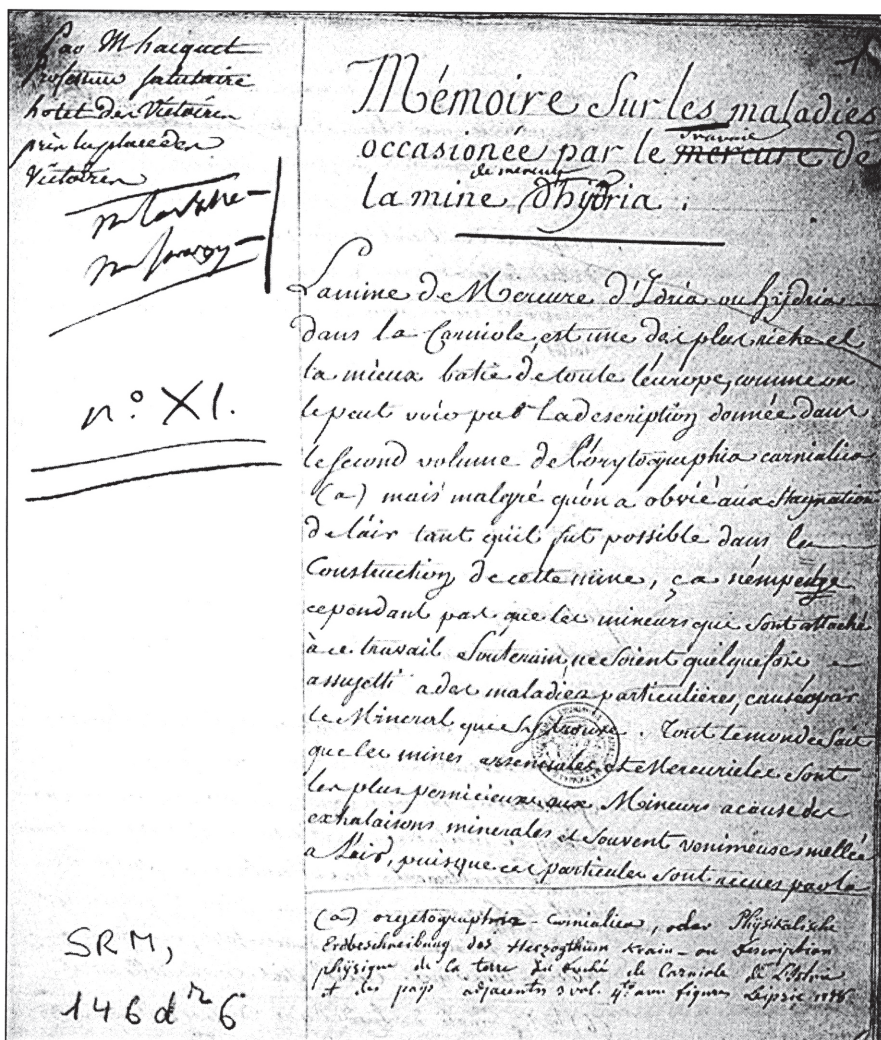 Par M hacquet
Professeur
hotel des Victoires
près la place des
Victoires
n.º XI.
SRM,
146 d
1
Mémoire Sur les maladies
travail
occasionée par le mercure de
de mercure
la mine d'hydria.
La mine de Mercure d'Idria ou hydria
dans la Carniole, est une des plus riche et
la mieux batie de toute l'europe, comme on
le peut voir par la description donnée dans
le second volume de l'orytographia carniolica
(a) mais malgré qu'on a obvié aux Stagnation
de l'air tant qu'il fut possible dans la
Construction de cette mine, ça n'empeche
cependant pas que les mineurs qui sont attaché
à ce travail Souterain, ne soient quelquefois
assujetti a des maladies particulières, causées par
le Mineral que s'y trouve. Tout le monde sait
que les mines arsenicales et Mercurieles sont
les plus pernicieux aux Mineurs a cause des
exhalaisons minerales et souvent venimeuses mellée
a l'air, puisque ces particules sont recues par la
(a) oryctographia Carniolica, oder Physikalische
Erdbeschreibung des Herzogthum Krain - ou Description
physique de la terre du duché de Carniole de l'Istrie
et des pays adjacents 3 vol. 4to avec figures Leipsic